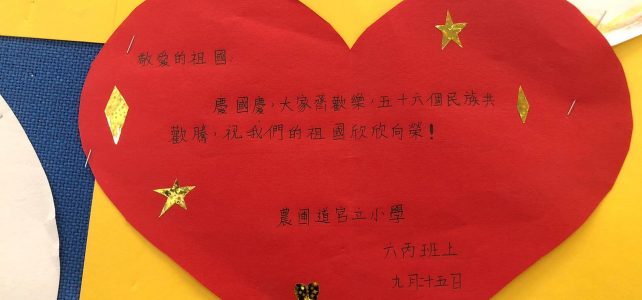 敬愛的祖國:
慶國慶,大家齊歡樂,五十六個民族共
歡騰,祝我們的祖國欣欣向榮!
農圃道官立小學
六丙班上
九月二十五日